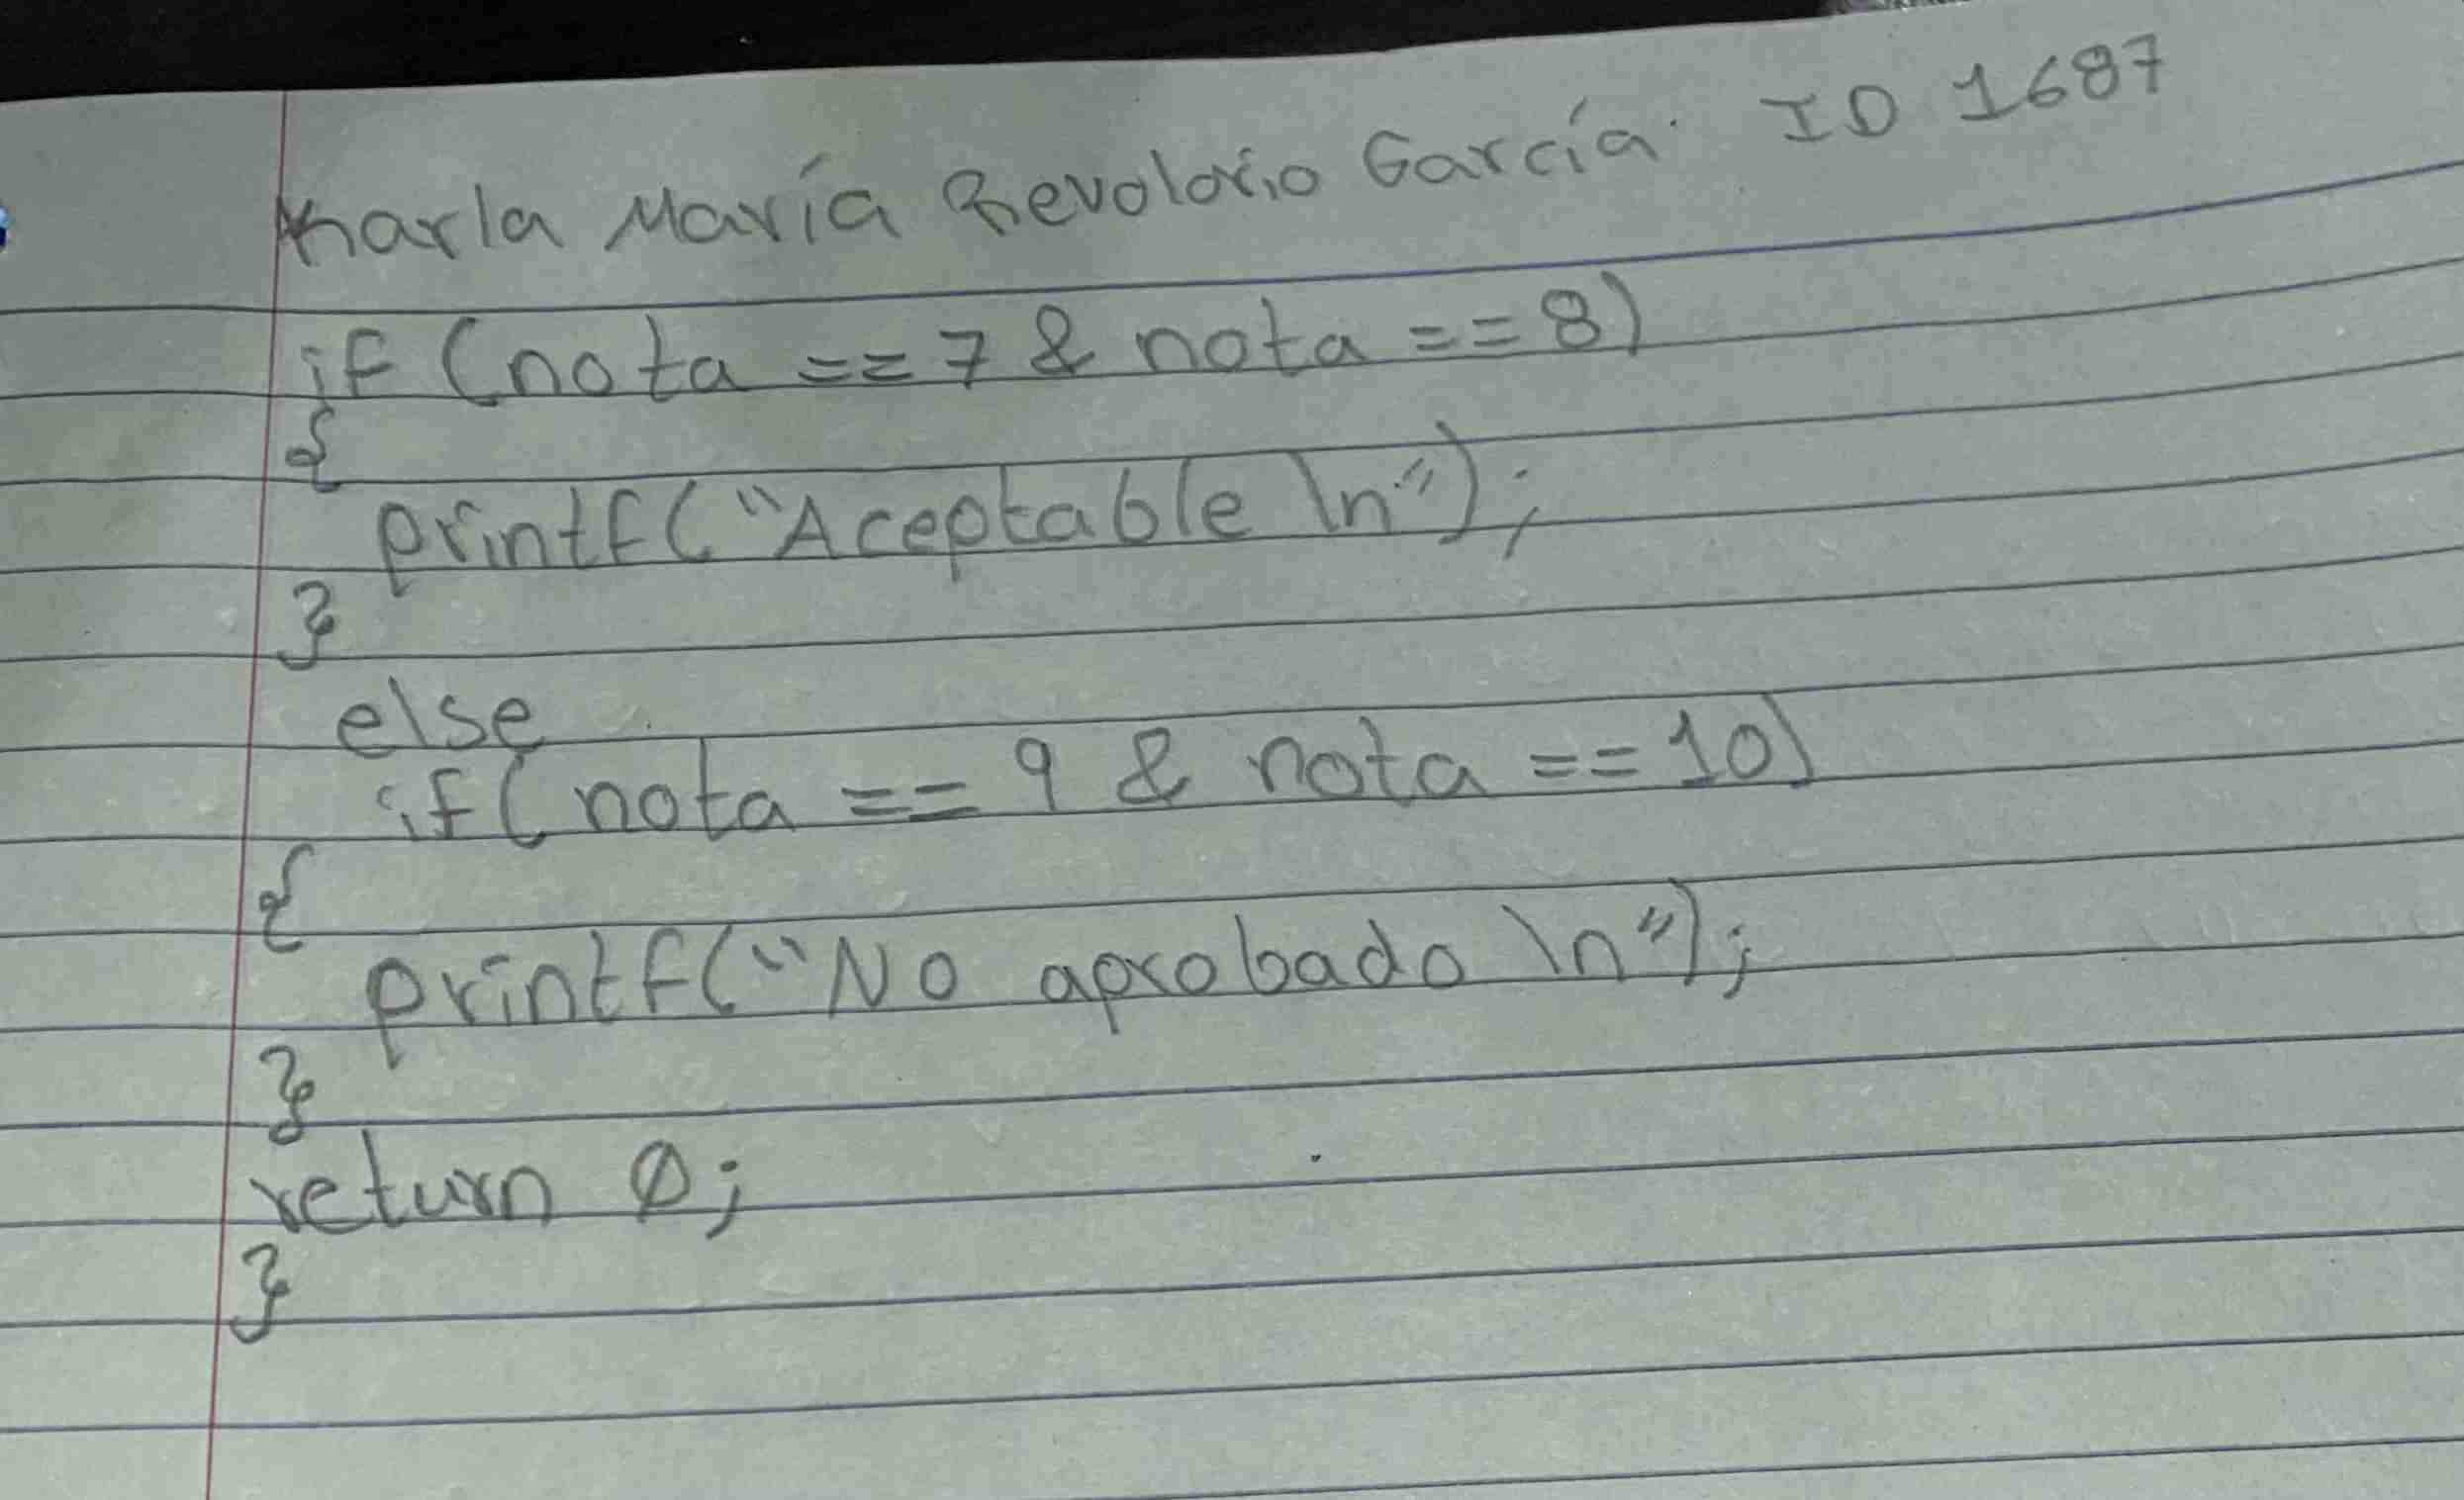 Karla María Revolorio García. ID 1687
if (nota == 7 & nota == 8)
{
printf("Aceptable \n");
}
else
if( nota == 9 & nota == 10)
{
printf("No aprobado \n");
}
return 0;
}